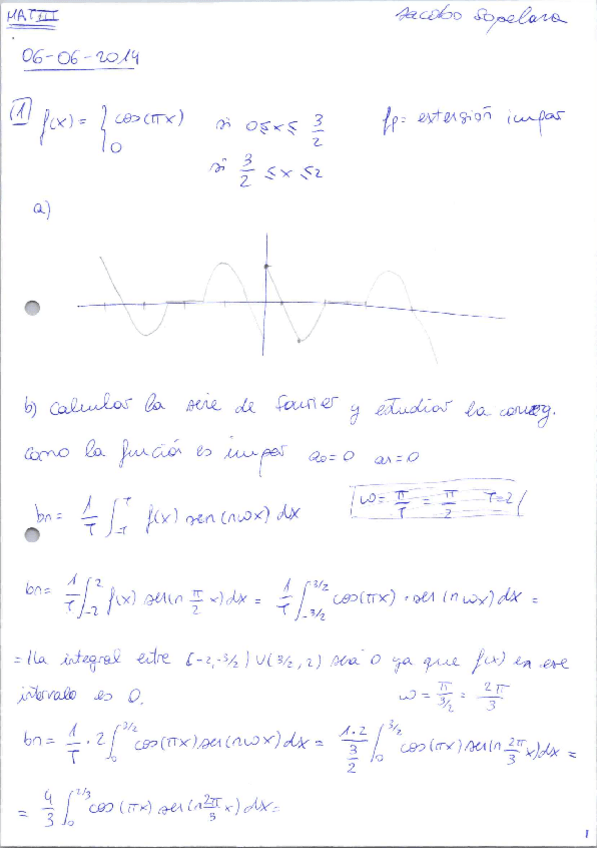 MAT III
Jacobo Sopelana
06-06-2014
(1) f(x) = { cos(πx) si 0≤x≤ 3/2 fp= extensión impar
0 si 3/2 ≤x ≤2
a)
b) Calcular la serie de Fourier y estudiar la converg.
como la función es impar a₀=0 an=0
bn= 1/T ∫_{-T}^{T} f(x) sen(nωx) dx ω= π/T = π/2 T=2
bn= 1/T ∫_{-2}^{2} f(x) sen(n π/2 x)dx = 1/T ∫_{-3/2}^{3/2} cos(πx) · sen(nωx)dx =
= la integral entre [-2,-3/2) ∪ (3/2, 2) será 0 ya que f(x) en ese
intervalo es 0. ω= π/(3/2) = 2π/3
bn= 1/T · 2 ∫_0^{3/2} cos(πx)sen(nωx)dx = 1·2/(3/2) ∫_0^{3/2} cos(πx)sen(n 2π/3 x)dx =
= 4/3 ∫_0^{2/3} cos(πx) sen(n 2π/3 x)dx=
1